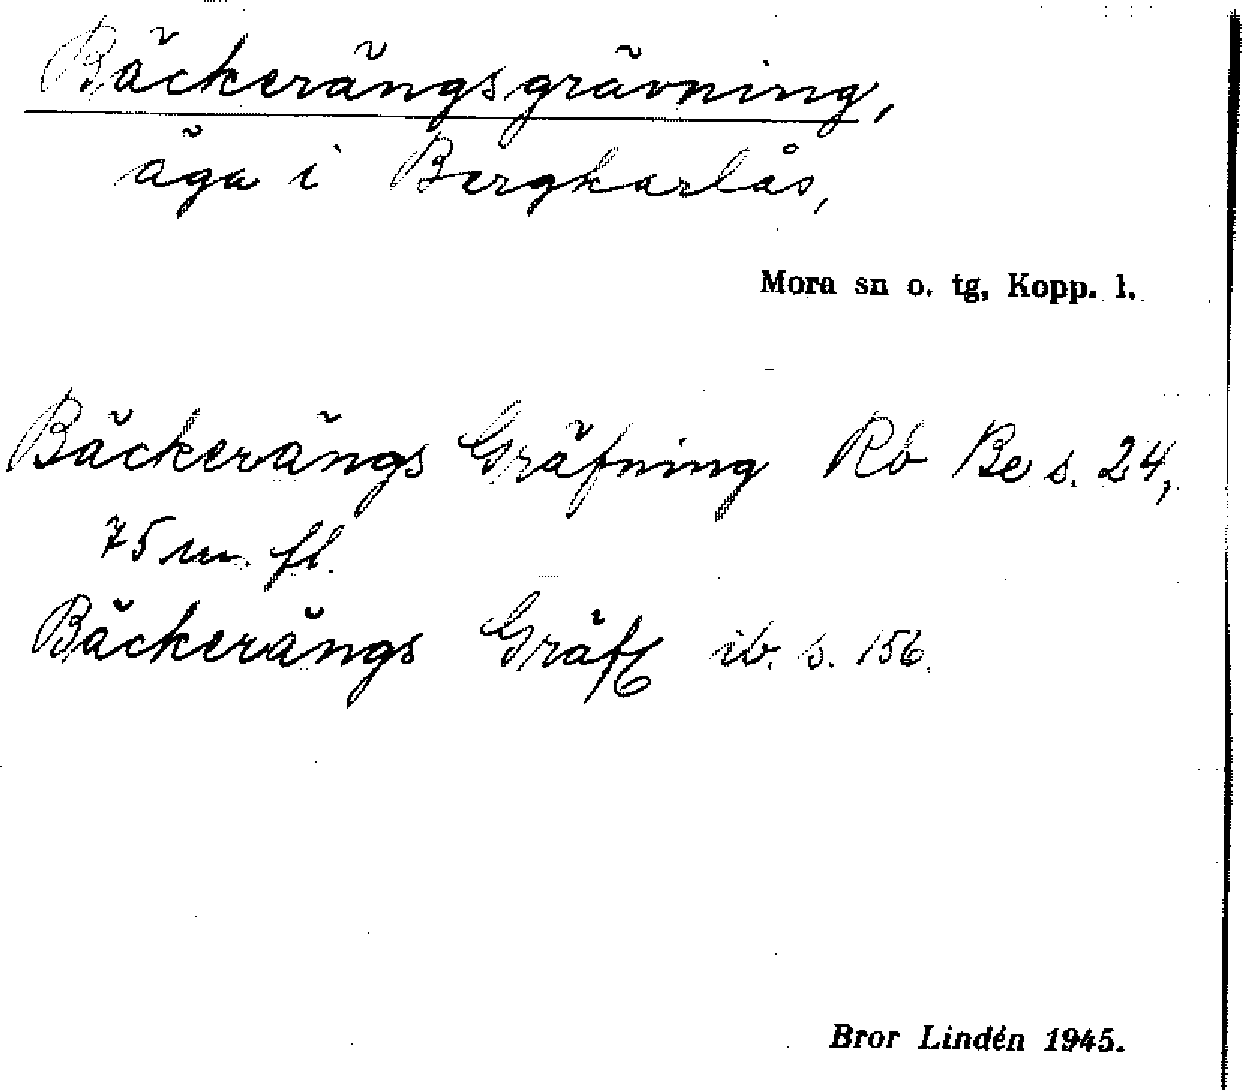 Bäckerängsgrävning,
äga i Bergkarlås,
Mora sn o. tg, Kopp. l.
Bäckerängs Gräfning Rb Be s. 24,
75 m. fl.
Bäckerängs Gräf ib. s. 156.
Bror Lindén 1945.